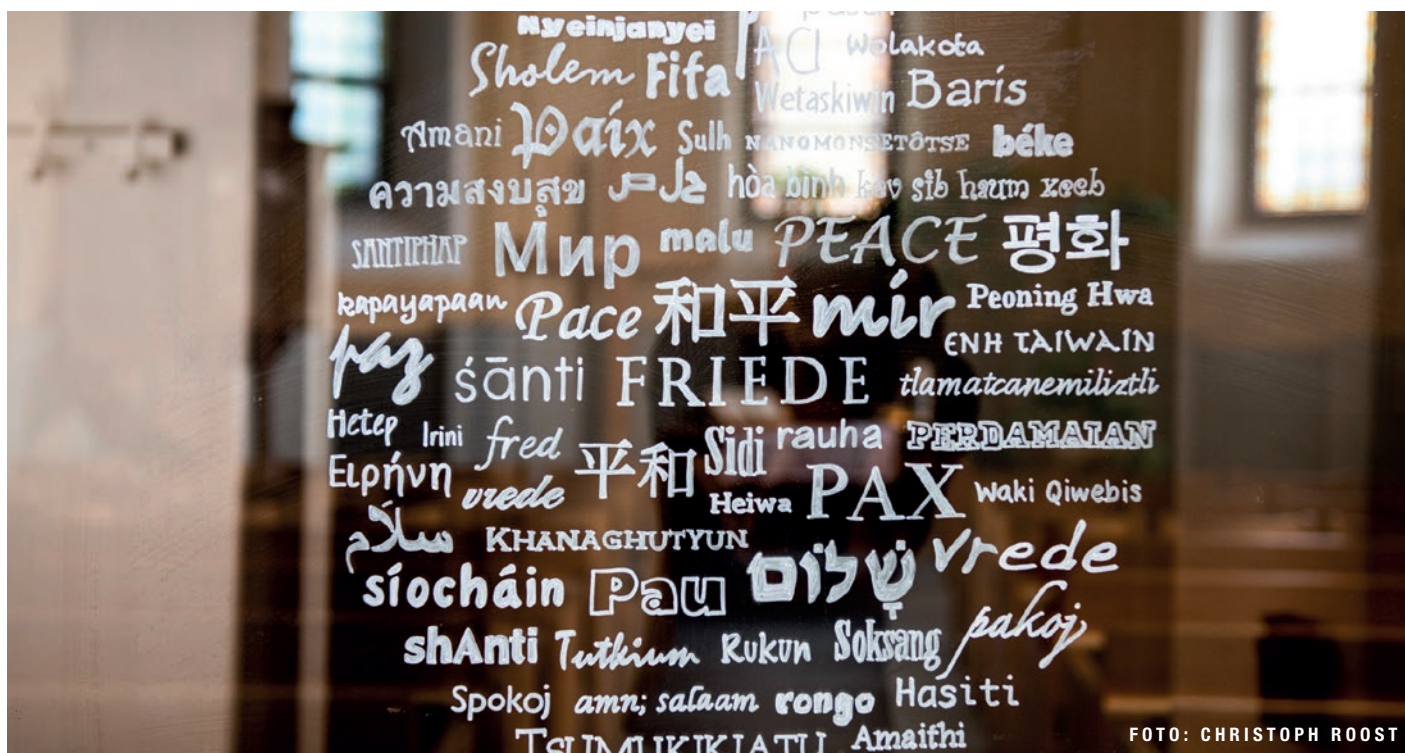 Nyeinjanyei
Wolakota
Sholem Fifa
Wetaskiwin Barís
Amani Paix Sulh NANOMONSETÔTSE béke
ความสงบสุข hòa bình kev sib haum xeeb
SANTIPHAP Мир malu PEACE 평화
kapayapaan Pace 和平 mír Peoning Hwa
ENH TÀIWAIN
paz śānti FRIEDE tlamatcanemiliztli
Hetep Irini fred 平和 Sidi rauha PERDAMAIAN
Ειρήνη vrede Heiwa PAX Waki Qiwebis
سلام KHANAGHUTYUN
síocháin Pau שָׁלוֹם vrede
shAnti Tutkium Rukun Soksang pakoj
Spokoj amn; salaam rongo Hasiti
TSUMUKIKIATU Amaithi
FOTO: CHRISTOPH ROOST